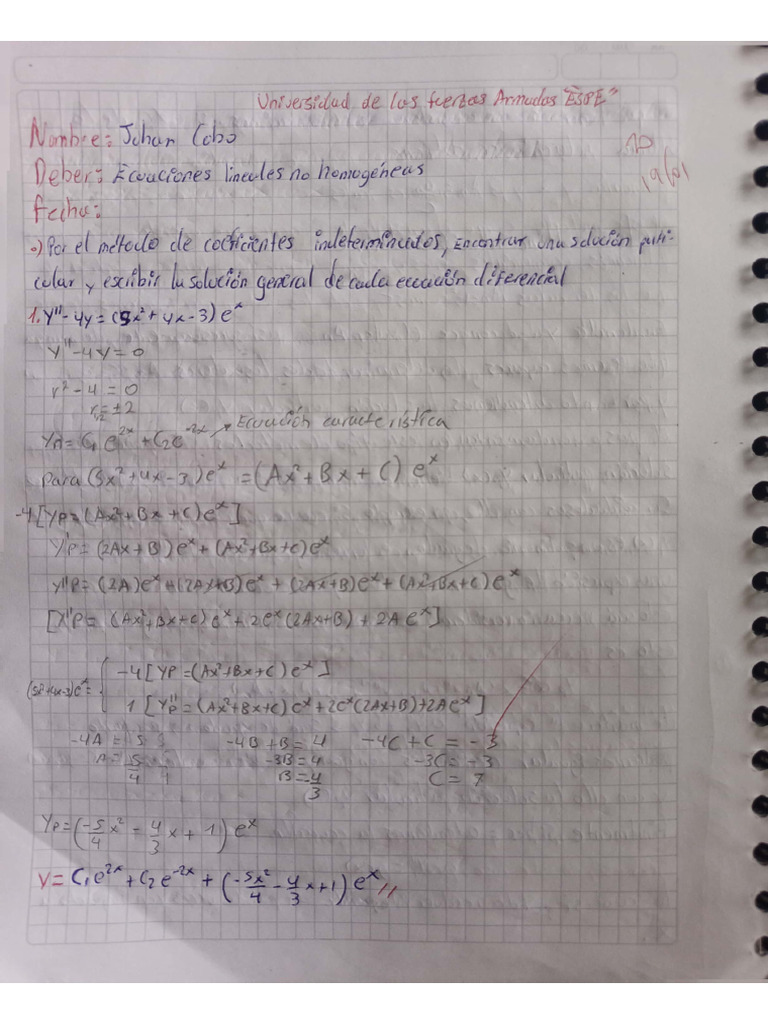 Universidad de las fuerzas Armadas "ESPE"
Nombre: Johan Cobo
10
19/01
Deber: Ecuaciones lineales no homogéneas
Fecha:
o) Por el método de coeficientes indeterminados, Encontrar una solución parti-
cular y escribir la solución general de cada ecuación diferencial
1. y'' - 4y = (5x² + 4x - 3) eˣ
y'' - 4y = 0
r² - 4 = 0
r₁,₂ = ±2
yh = C₁ e²ˣ + C₂e⁻²ˣ → Ecuación característica
para (5x² + 4x - 3) eˣ = (Ax² + Bx + C) eˣ
-4 [Yp = (Ax² + Bx + C) eˣ]
Y'p = (2Ax + B) eˣ + (Ax² + Bx + C) eˣ
Y''p = (2A) eˣ + (2Ax + B) eˣ + (2Ax + B) eˣ + (Ax² + Bx + C) eˣ
[Y''p = (Ax² + Bx + C) eˣ + 2eˣ (2Ax + B) + 2A eˣ]
(5x² + 4x - 3) eˣ = { -4 [Yp = (Ax² + Bx + C) eˣ]
1 [Y''p = (Ax² + Bx + C) eˣ + 2eˣ (2Ax + B) + 2A eˣ]
-4A = 5 -4B + B = 4 -4C + C = -3
A = 5/4 -3B = 4 -3C = -3
B = 4/3 C = 1
Yp = (-5/4 x² - 4/3 x + 1) eˣ
Y = C₁e²ˣ + C₂e⁻²ˣ + (-5x²/4 - 4/3 x + 1) eˣ //